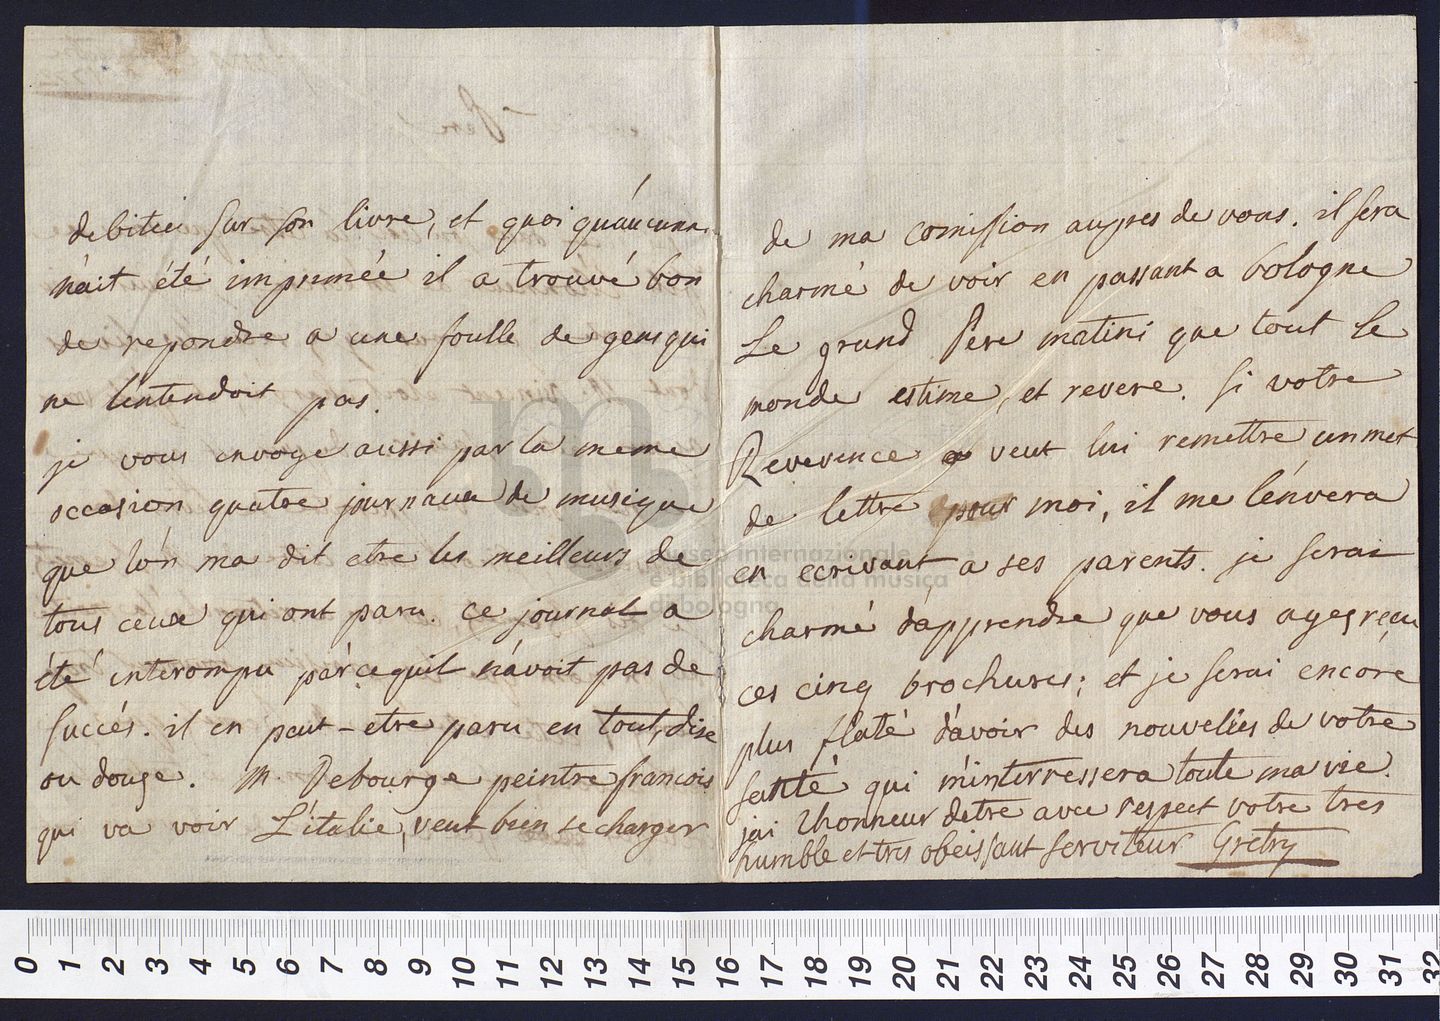 debiteé sur son livre, et quoi qu'aucune
n'ait été imprimée il a trouvé bon
de repondre a une foulle de gens qui
ne l'entendoit pas.
je vous envoye aussi par la meme
occasion quatre journaux de musique
que l'on ma dit etre les meilleurs de
tous ceux qui ont paru. ce journal a
été interompu parcequil n'avoit pas de
succés. il en peut-etre paru en tout, dise
ou douze. M. Debourge peintre francois
qui va voir L'italie, veut bien se charger
de ma comission aupres de vous. il sera
charmé de voir en passant a bologne
Le grand Pere matini que tout le
monde estime, et revere. si votre
Reverence veut lui remettre un met
de lettre pour moi, il me l'envera
en ecrivant a ses parents. je serai
charmé d'apprendre que vous ayes reçu
ces cinq brochures; et je serai encore
plus flaté d'avoir des nouvelles de votre
santé qui m'interressera toute ma vie.
jai l'honneur detre avec respect votre tres
humble et tres obeissant serviteur Gretry
museo internazionale
e biblioteca della musica
di bologna
0 1 2 3 4 5 6 7 8 9 10 11 12 13 14 15 16 17 18 19 20 21 22 23 24 25 26 27 28 29 30 31 32